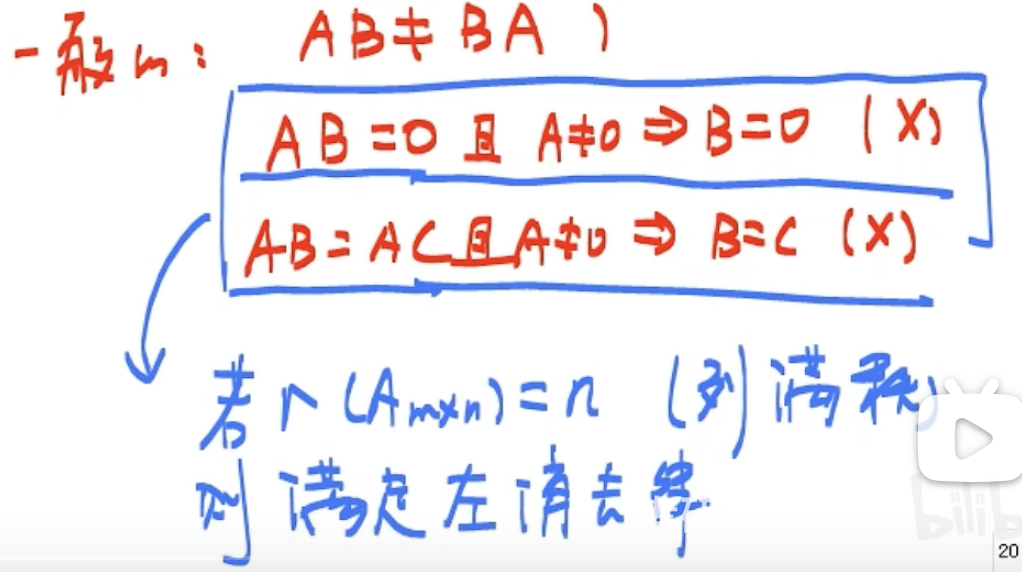 一般的: AB≠BA )
AB=0 且 A≠0 ⇒ B=0 (X)
AB=AC且A≠0 ⇒ B=C (X)
若 r(Aₘₓₙ)=n (列满秩)
则满足左消去律
bilib
20